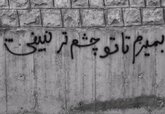 بمیرم تا تو چشم تر نبینی